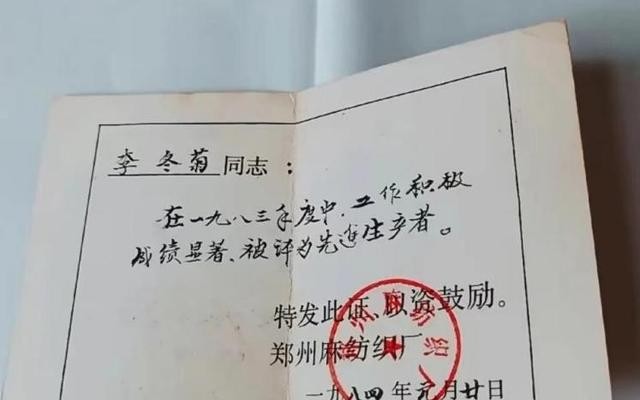 李冬菊同志：
在一九八三年度中，工作积极
成绩显著、被评为先进生产者。
特发此证、以资鼓励。
郑州麻纺织厂
一九八四年元月廿日
郑州麻纺织